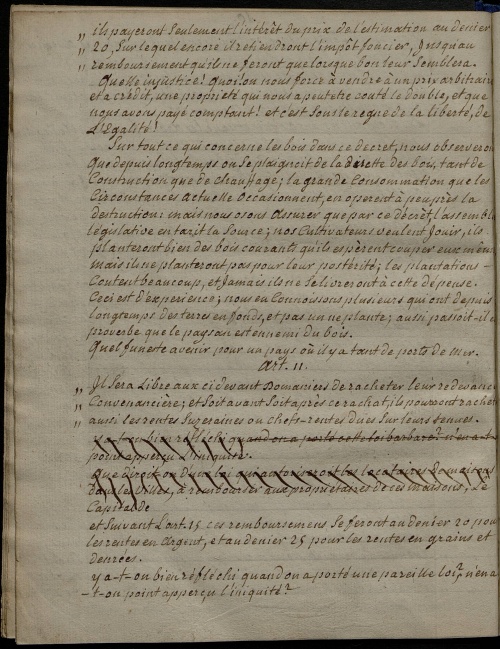 „ ils payeront seulement l'intérêt du prix de l'estimation au denier
„ 20, sur lequel encore il retiendront l'impôt foncier, jusqu'au
„ remboursement qu'ils ne feront que lorsque bon leur semblera.
Quelle injustice! quoi! on nous force à vendre à un prix arbitraire
et à crédit, une propriété qui nous a peutetre couté le double, et que
nous avons payé comptant! et c'est sous le regne de la liberté, de
L'Egalité!
Sur tout ce qui concerne les bois dans ce decret, nous observerons
que depuis longtemps on se plaignoit de la disette des bois, tant de
Construction que de chauffage; la grande Consommation que les
Circonstances actuelle occasionnent, en operent à peu près la
destruction: mais nous osons assurer que par ce décret, l'assemblée
législative en tarit la Source; nos Cultivateurs veulent jouir, ils
planteront bien des bois courants qu'ils espèrent couper eux mêmes
mais il ne planteront pas pour leur postérité; les plantations
Coutent beaucoup, et jamais ils ne se livreront à cette dépense.
Ceci est d'experience; nous en Connoissons plusieurs qui ont depuis
longtemps des terres en fonds, et pas un ne plante; aussi passoit-il en
proverbe que le paysan est ennemi du bois.
Quel funeste avenir pour un pays où il y a tant de ports de mer.
Art. 11.
„ Il sera Libre aux ci devant Domaniers de racheter leur redevance
„ Convenancière; et soit avant soit après ce rachat, ils pourront racheter
„ aussi les rentes Suzeraines ou chefs-rentes dues sur leurs tenues.
y a-t-on bien réfléchi quand on a porté cette loi barbare? n'en a-t-
point apperçu L'iniquité.
Que diroit-on d'une loi qui autoriseroit les locataires Domaniers
dans les villes, à rembourser aux propriétaires de ces maisons, Le
Capital de
et suivant L'art. 15 ces remboursemens se feront au denier 20 pour
les rentes en argent, et au denier 25 pour les rentes en grains et
denrées.
y a-t-on bien réfléchi quand on a porté une pareille loi? n'en a
-t-on point apperçu l'iniquité?